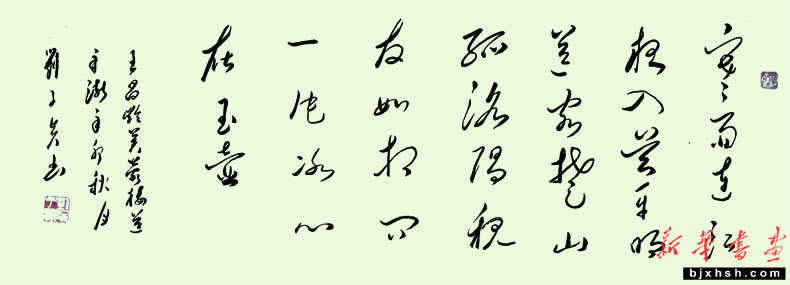 寒雨连江
夜入吴平明
送客楚山
孤洛陽親
友如相问
一片冰心
在玉壶
王昌龄芙蓉楼送
辛渐辛卯秋月
劉子书
新華書画
bjxhsh.com